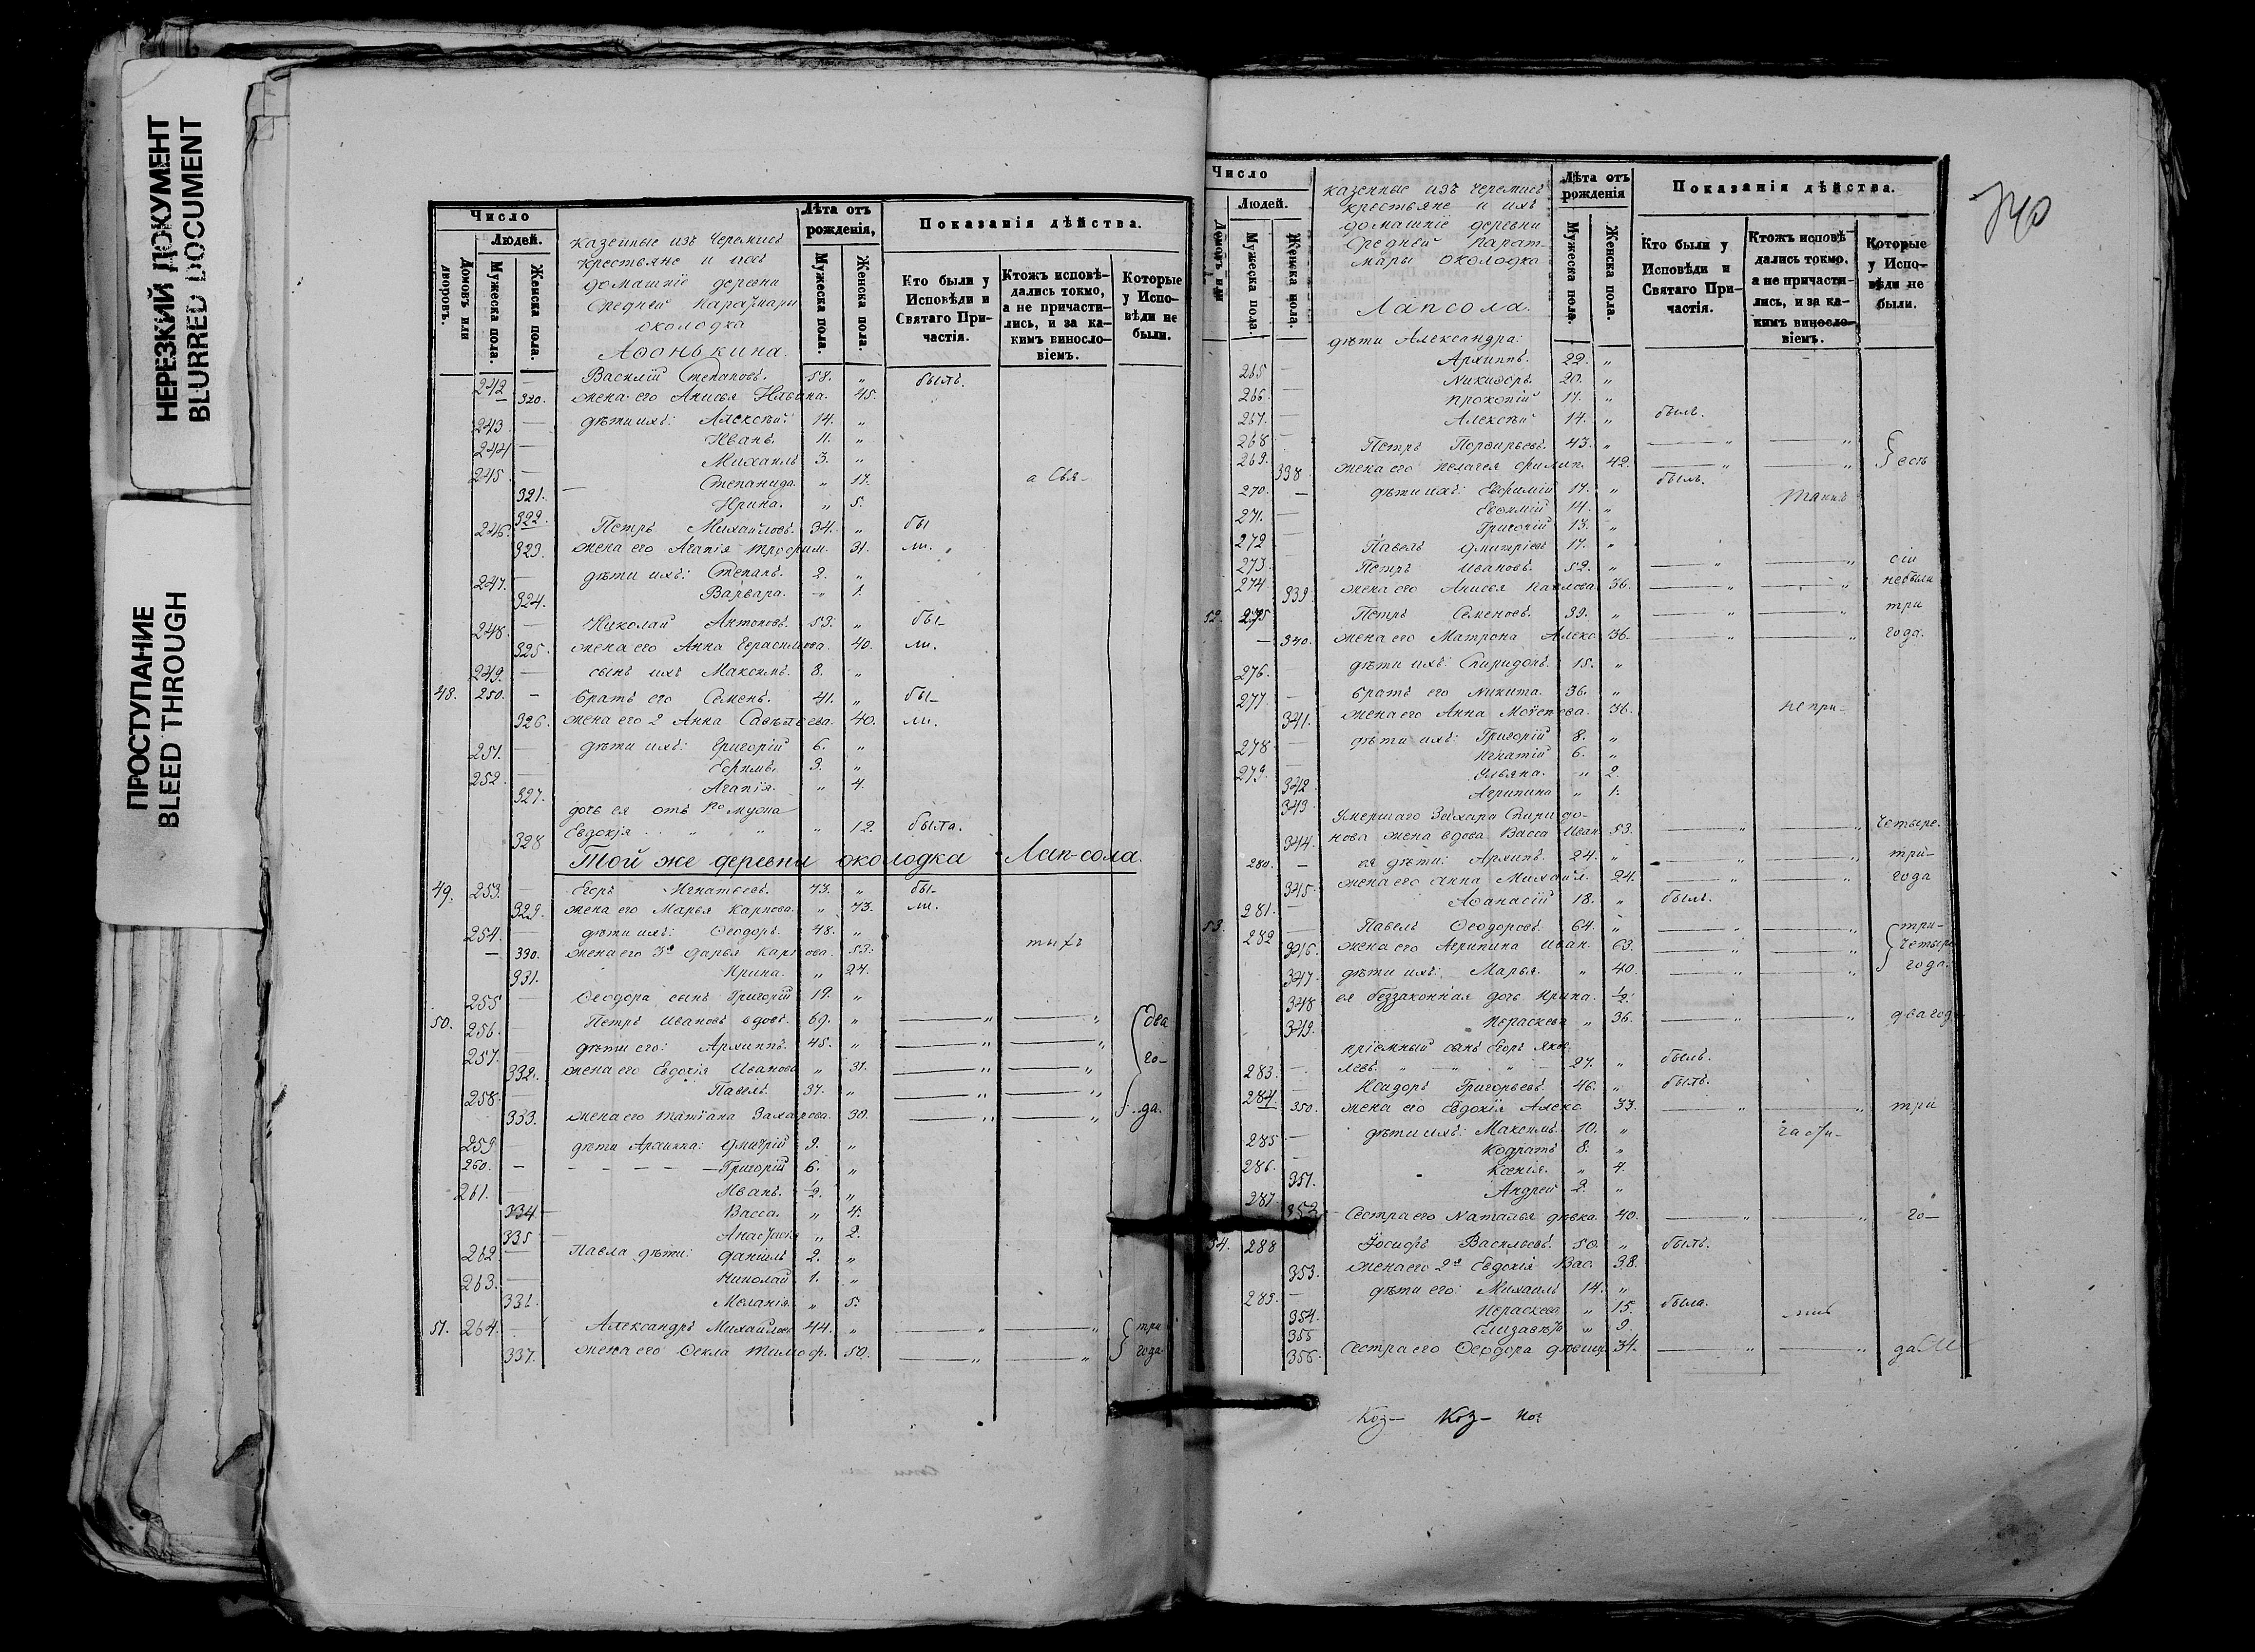 НЕРЕЗКИЙ ДОКУМЕНТ
BLURRED DOCUMENT
ПРОСТУПАНИЕ
BLEED THROUGH
Число
Людей.
Домовъ или дворовъ.
Мужеска пола.
Женска пола.
казенные изъ Черемисъ
крестьяне и ихъ
домашніе деревни
Средней
околодка
Аѳонькина.
Лѣта отъ рожденія,
Мужеска пола.
Женска пола.
Показанія дѣйства.
Кто были у Исповѣди и Святаго Причастія.
Ктожъ исповѣдались токмо, а не причастились, и за какимъ винословіемъ.
Которые у Исповѣди не были.
242 — Василій Степановъ. 58. „ былъ.
320. жена его Анисья Ильина. 45.
243 — дѣти ихъ: Алексѣй 14. „
244 — Иванъ. 11. „
245 — Михаилъ 3. „
321. — Степанида. „ 17. а Свя-
322. Ирина. „ 5.
246. Петръ Михайловъ. 34. „ бы
323. жена его Агапія Трофим. 31. ли. „
247. — дѣти ихъ: Степанъ. 2. „
324. Варвара. „ 1.
248. — Николай Антоновъ. 53. „ бы-
325. жена его Анна Герасимова. 40. ли.
249. — сынъ ихъ Максимъ. 8. „
48. 250. — братъ его Семенъ. 41. „ бы-
326. жена его 2 Анна Савельева. 40. ли.
251. — дѣти ихъ: Григорій 6. „
252. — Ефимъ. 3. „
327. Агапія. „ 4.
дочь ея отъ 1го мужа
328 Евдокія. „ „ „ 12. была.
Той же деревни околодка Лап-сола.
49. 253. — Егоръ Игнатьевъ. 73. „ бы-
329. жена его Марья Карпова. „ 73. ли.
254. — дѣти ихъ: Ѳеодоръ. 48. „
— 330. жена его 3я Дарья Карпова. 53. тыхъ
331. Ирина. „ 24.
255 — Ѳеодора сынъ Григорій 19. „
50. 256. — Петръ Ивановъ вдовъ. 69. „ — „ — „ два
257. — дѣти его: Архиппъ. 45. „ — „ — „
332. жена его Евдокія Иванова „ 31. — „ — „ го-
258. — Павелъ. 37. „ — „ — „
333. жена его Татіана Захарова. 30. — „ — „ да.
259. — дѣти Архиппа: Дмитрій 9. „
260. — — — — — Григорій 6. „
261. — Иванъ. ½. „
334 — Васса. „ 4.
335 — „ 2.
262 — Павла дѣти: Даніилъ 2. „
263. — Николай 1. „
336. Меланія. „ 5.
51. 264. — Александръ Михайловъ 44. „ — „ — „ три
337. жена его Ѳекла Тимоф. 50. — „ — „ года
Число
Людей.
Домовъ или
Мужеска пола.
Женска пола.
казенные изъ черемисъ
крестьяне и ихъ
домашніе деревни
Средней Парат-
мары околодка
Лапсола.
Лѣта отъ рожденія
Мужеска пола.
Женска пола.
Показанія дѣйства.
Кто были у Исповѣди и Святаго Причастія.
Ктожъ исповѣдались токмо, а не причастились, и за какимъ винословіемъ.
Которые у Исповѣди не были.
дѣти Александра:
265 — Архиппъ. 22. „
266 — Никифоръ. 20. „
267. — Прокопій 17. „
268 — Алексѣй 14. „ былъ.
269. Петръ Порфирьевъ. 43. „ — „ — „
338 жена его Пелагея Филип. 42. — „ — „ есть
270. — дѣти ихъ: Евфимій 17. „ былъ.
271. — 14. „
272 — Григорій 13. „
273. Павелъ Дмитріевъ 17. „
274 Петръ Ивановъ. 52. „ — „ — „ сіи
339. жена его Анисья Павлова. 36. — „ — „ небыли
52. 275 Петръ Семеновъ. 39. „ — „ — „ три
— 340. жена его Матрона Алекс. 36. — „ — „ года.
276. — дѣти ихъ: Спиридонъ. 15. „
277 — братъ его Никита. 36. „
341. жена его Анна Моисеева. 36. не при-
278 — дѣти ихъ: Григорій 8. „
279. — Игнатій 6. „
342 Ульяна. „ 2.
343 Агрипина „ 1.
Умершаго Захара Спиридо-
344. нова жена вдова Васса Иван. 53. — „ — „ Четыре.
280. — ея дѣти: Архипъ. 24. „ — „ — „ три-
345. жена его Анна Михайл. 24. — „ — „ года
281. — Аѳанасій 18. „ былъ.
53. 282 — Павелъ Ѳеодоровъ. 64. „ — „ — „ три-
346. жена его Агрипина Иван. 63. — „ — „ четыре
347. дѣти ихъ: Марья. „ 40. — „ — „ года.
348 ея беззаконная дочь Ирина. ½.
349. Параскева „ 36. — „ — „ два год
пріемный сынъ Егоръ Яков-
283. — левъ. „ „ 27. „ былъ.
284. Исидоръ Григорьевъ. 46. „ былъ.
350. жена его Евдокія Алекс. 33. — „ — „ три
285 — дѣти ихъ: Максимъ. 10. „ части-
286. — Кодратъ 8. „
351. Ксенія. „ 4.
287. Андрей 2. „
352 — Сестра его Наталья дѣвка. 40. — „ — „ го-
54. 288 Іосифъ Васильевъ. 50. „ былъ.
353. жена его 2я Евдокія Вас. 38.
289. — дѣти его: Михаилъ 14. „
354. Параскева „ 15. была.
355 Елизавета „ 9.
356. Сестра его Ѳеодора дѣвица 34. — „ — „
Коз- Коз-